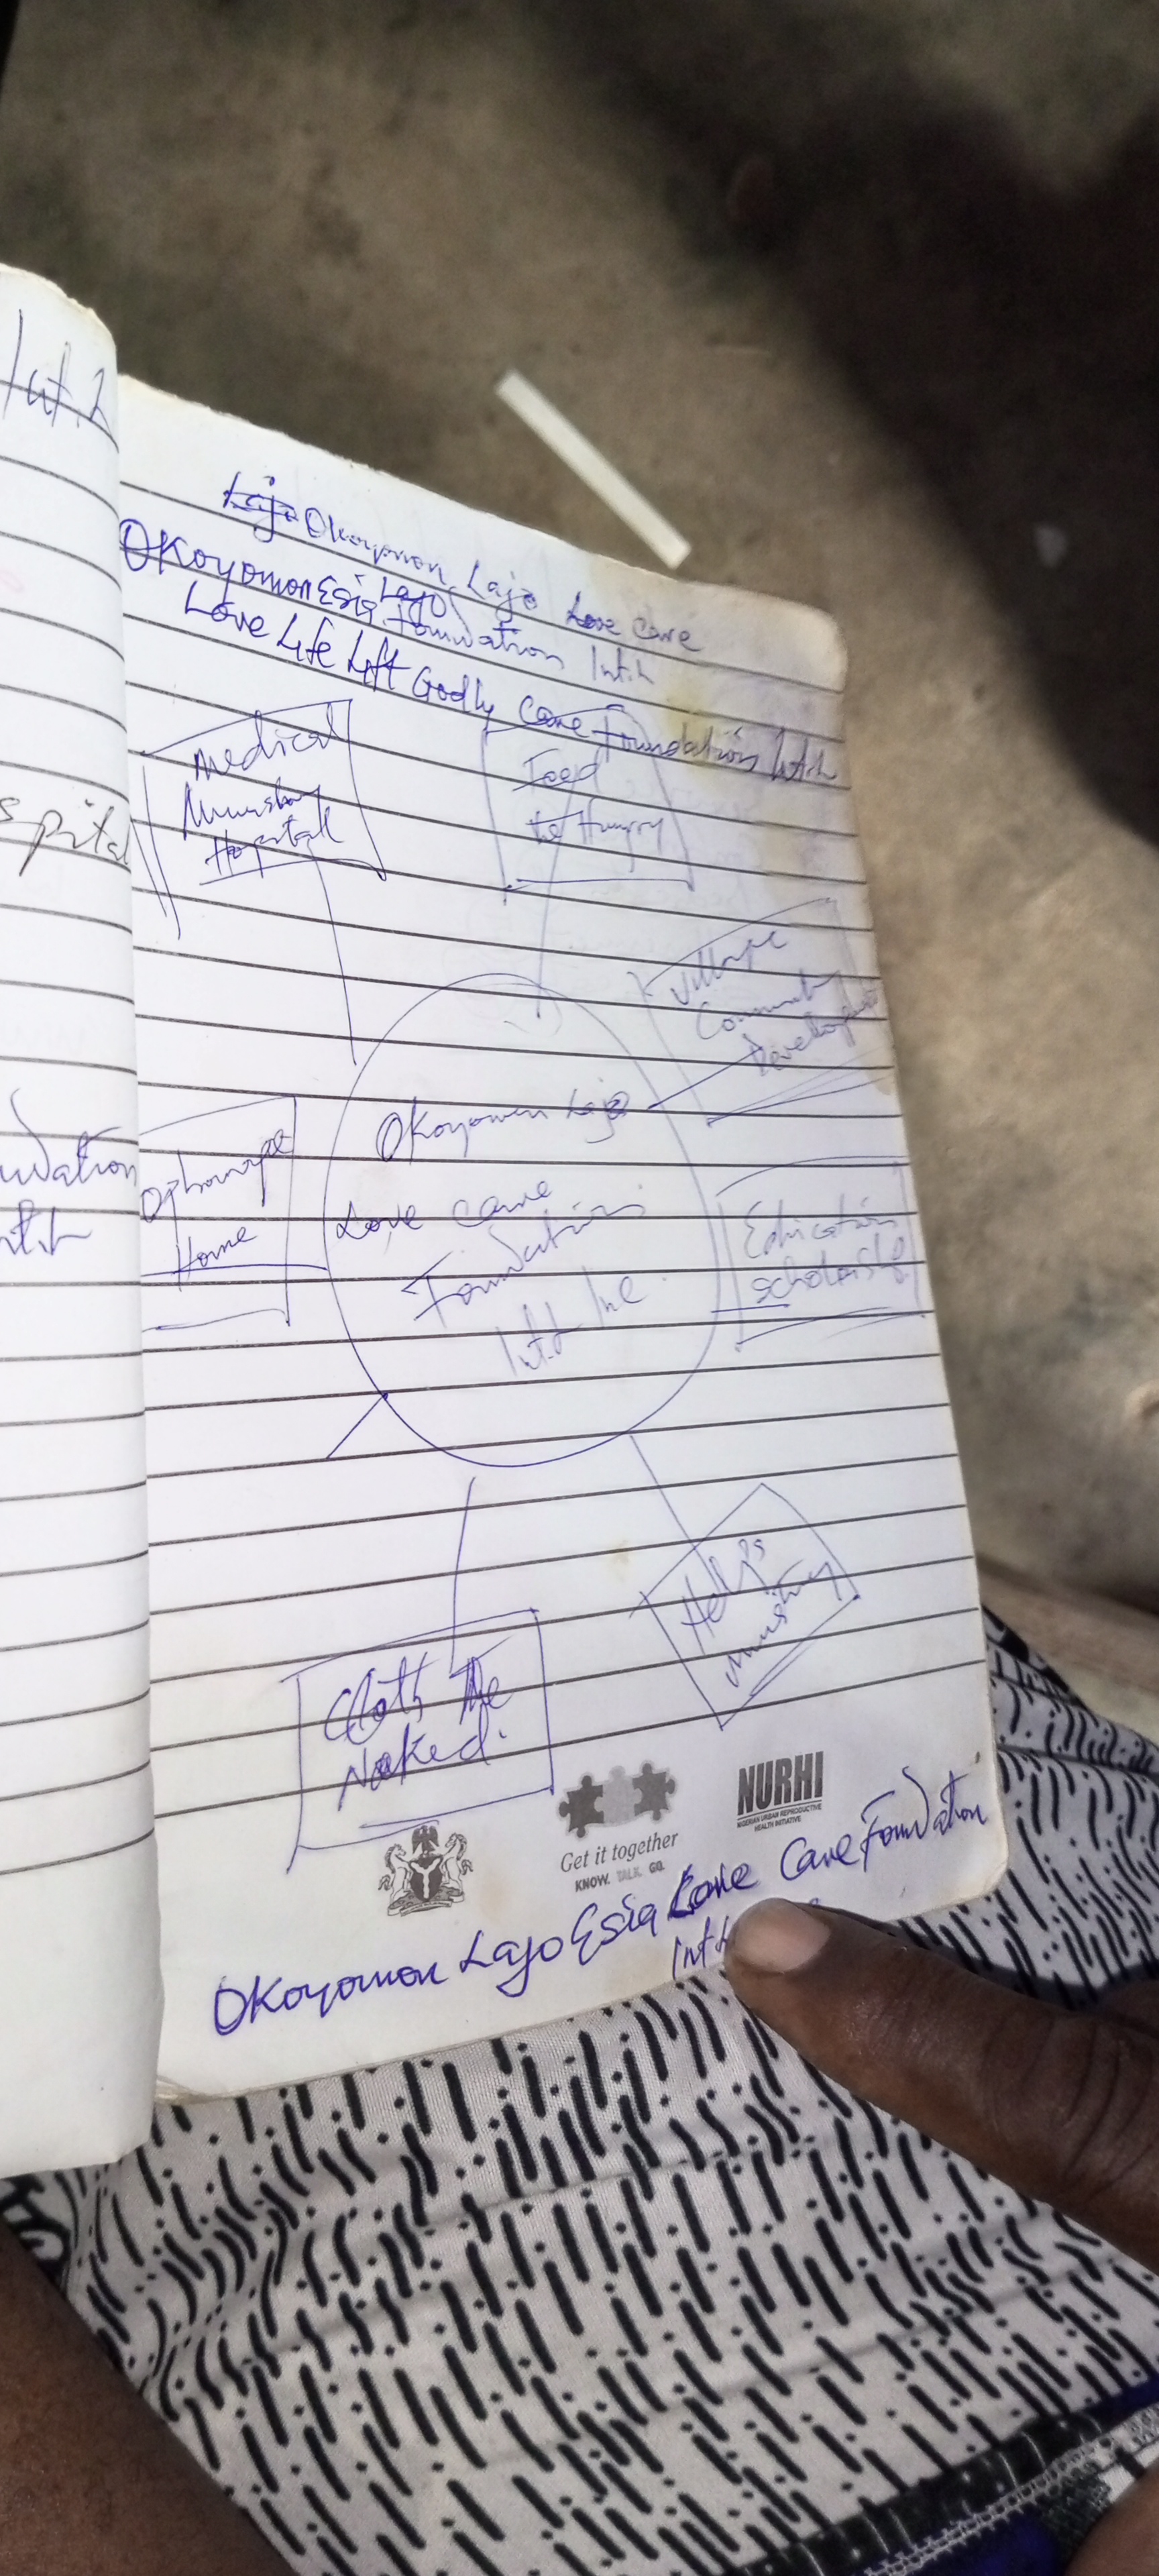 Int.L
spital
undation
nt.L
Lajo Okoyomon Lajo Love Care
Okoyomon Esia Lajo Foundation Int.L
Love Life Lift Godly Care Foundation Int.L
Medical
Hospital
Feed
the Hungry
Village
Community
Development
Okoyomon Lajo
Love Care
Foundation
Int.L Inc
Home
Education
Scholarship
Help's
Ministry
Cloth the
Naked.
Get it together
KNOW. TALK. GO.
NURHI
NIGERIAN URBAN REPRODUCTIVE
HEALTH INITIATIVE
Okoyomon Lajo Esia Love Care Foundation